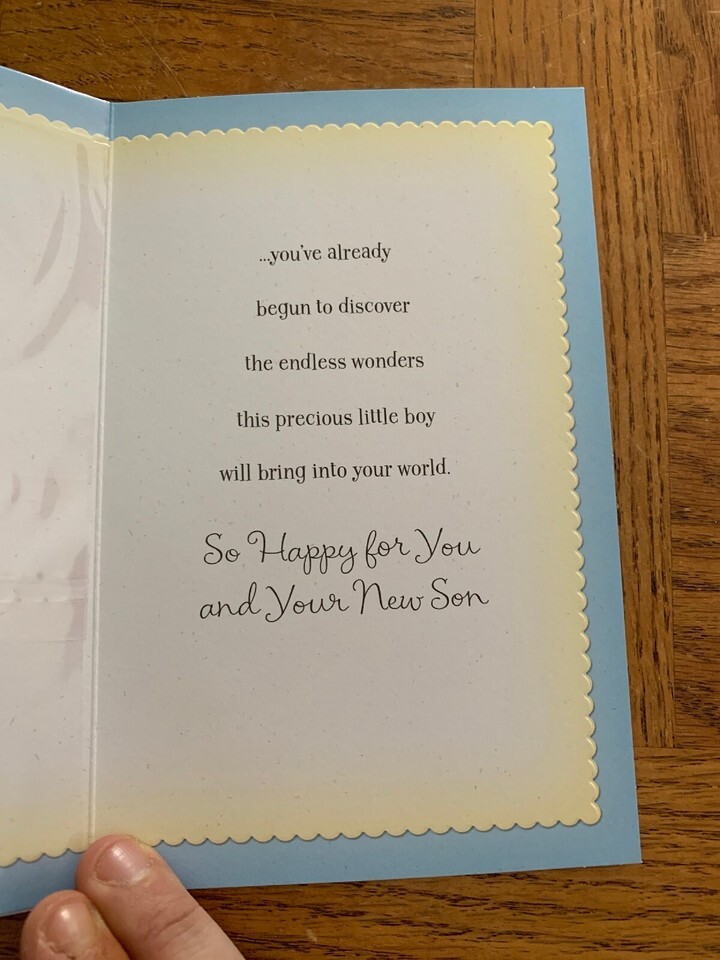 ...you've already
begun to discover
the endless wonders
this precious little boy
will bring into your world.
So Happy for You
and Your New Son